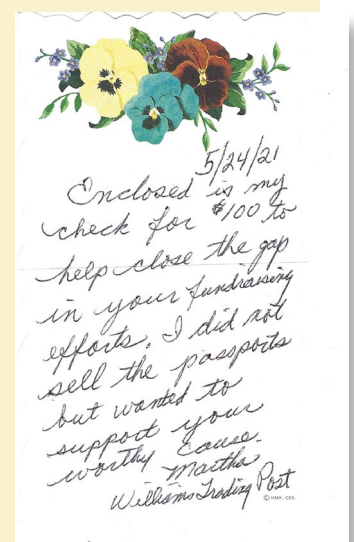 5/24/21
Enclosed is my
check for $100 to
help close the gap
in your fundraising
efforts. I did not
sell the passports
but wanted to
support your
worthy cause.
Martha
Williams Trading Post
© HMK. CDS.